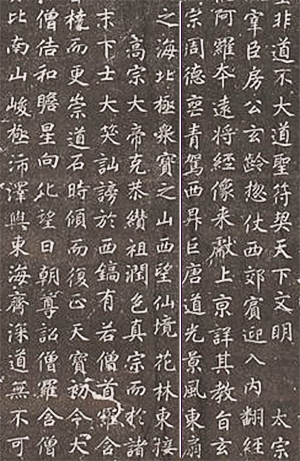 聖非道不大道聖符契天下文明　太宗
宰臣房公玄齡惣仗西郊賓迎入內翻經
阿羅本遠將經像來獻上京詳其教旨玄
宗周德喪青駕西昇巨唐道光景風東扇
之海北極衆寶之山西望仙境花林東接
高宗大帝克恭纘祖潤色真宗而於諸
末下士大笑訕謗於西鎬有若僧首羅含
橈而更崇道石時傾而復正天寶初令大
僧佶和瞻星向化望日朝尊詔僧羅含僧
比南山峻極沛澤與東海齊深道無不可